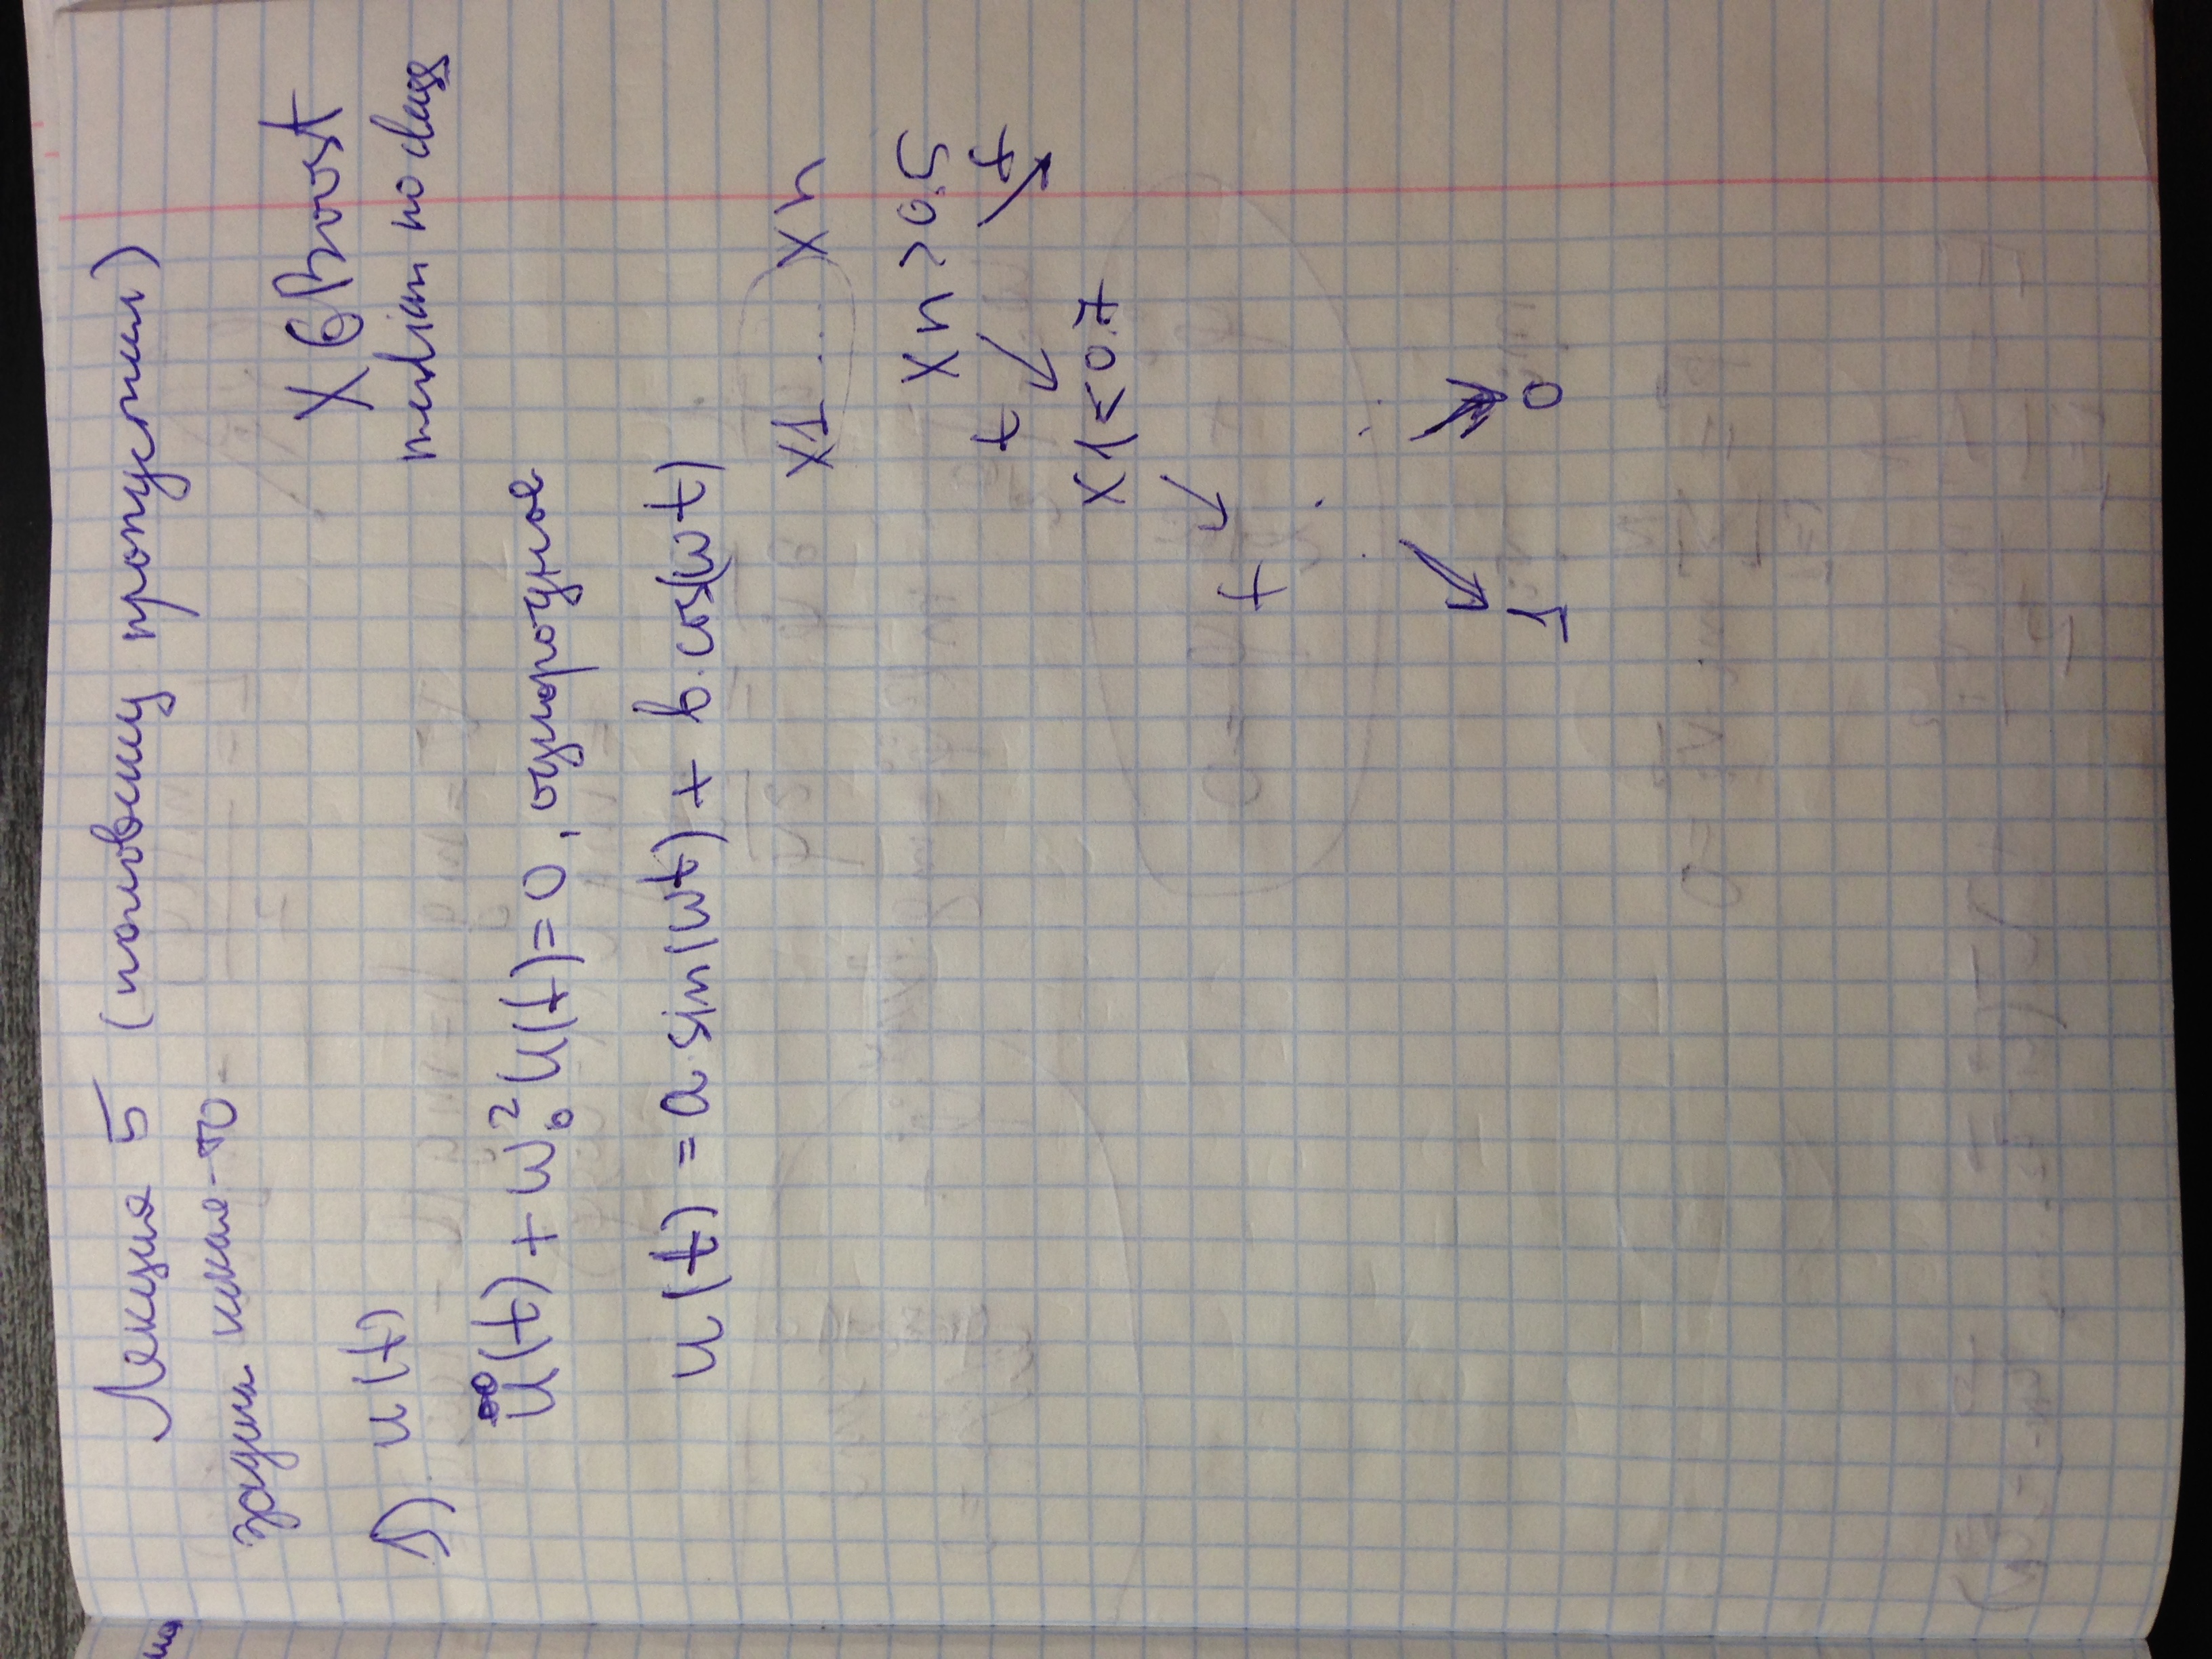 Лекция 5 (половину пропустили)
задача какая-то
XGBoost
median по classу
1) u(t)
ü(t) + ω₀² u(t) = 0, однородное
u(t) = a·sin(ωt) + b·cos(ωt)
x1 .... xn
xn > 0.5
t f
x1 < 0.7
t
1 0